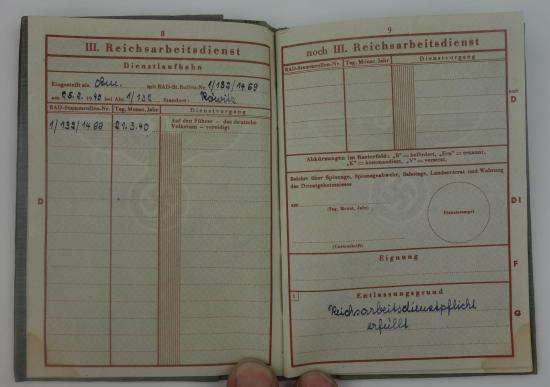 8
III. Reichsarbeitsdienst
Dienstlaufbahn
Eingestellt als mit RAD-St.Rollen-Nr. 1/132/1469
am 1940 bei Abt. 1/132 Standort:
RAD-Stammrollen-Nr. Tag, Monat, Jahr Dienstvorgang
1/132/1469 21.3.40 Auf den Führer – des deutsche
Volkstum – vereidigt
D
9
noch III. Reichsarbeitsdienst
RAD-Stammrollen-Nr. Tag, Monat, Jahr Dienstvorgang
noch
D
Abkürzungen im Rasterfeld: „B“ = befördert, „Ern“ = ernannt,
„K“ = kommandiert, „V“ = versetzt.
Belehrt über Spionage, Spionageabwehr, Sabotage, Landesverrat und Wahrung
des Dienstgeheimnisses
am
(Tag, Monat, Jahr)
Dienststempel
D I
(Unterschrift)
Eignung
F
1 Entlassungsgrund
Reichsarbeitsdienstpflicht
erfüllt
G